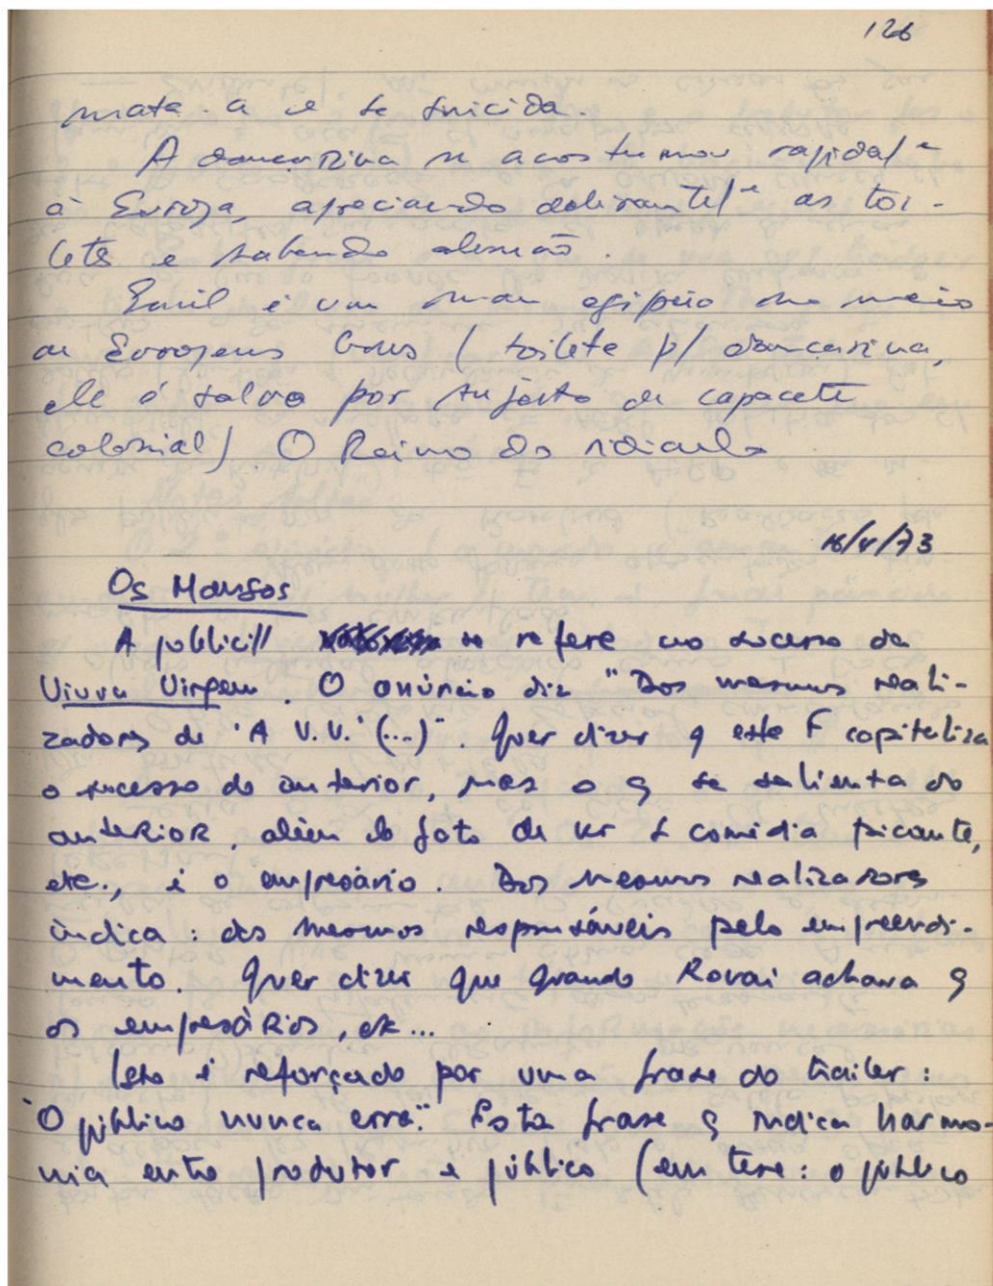 126
mata-a e se suicida.
A dançarina se acostumou rapidal/ᵉ
à Europa, apreciando delirantel/ᵉ as toi-
letes e sabendo alemão.
Emil é um mau egípcio no meio
de Europeus bons (toilete p/ dançarina,
ele é salvo por sujeito de capacete
colonial) O Reino do ridiculo
16/4/73
Os Mansos
A public// se refere ao sucesso da
Viuva Virgem. O anúncio diz "Dos mesmos reali-
zadores de 'A V.V.' (...)". Quer dizer q este F capitaliza
o sucesso do anterior, mas o q se salienta do
anterior, além do fato de ser comédia picante,
etc., é o empresário. Dos mesmos realizadores
indica: dos mesmos responsáveis pelo empreendi-
mento. Quer dizer que quando Rovai achava q
os empresários, etc...
Isto é reforçado por uma frase do trailer:
"O público nunca erra". Esta frase q indica harmo-
nia entre produtor e público (em tese: o público